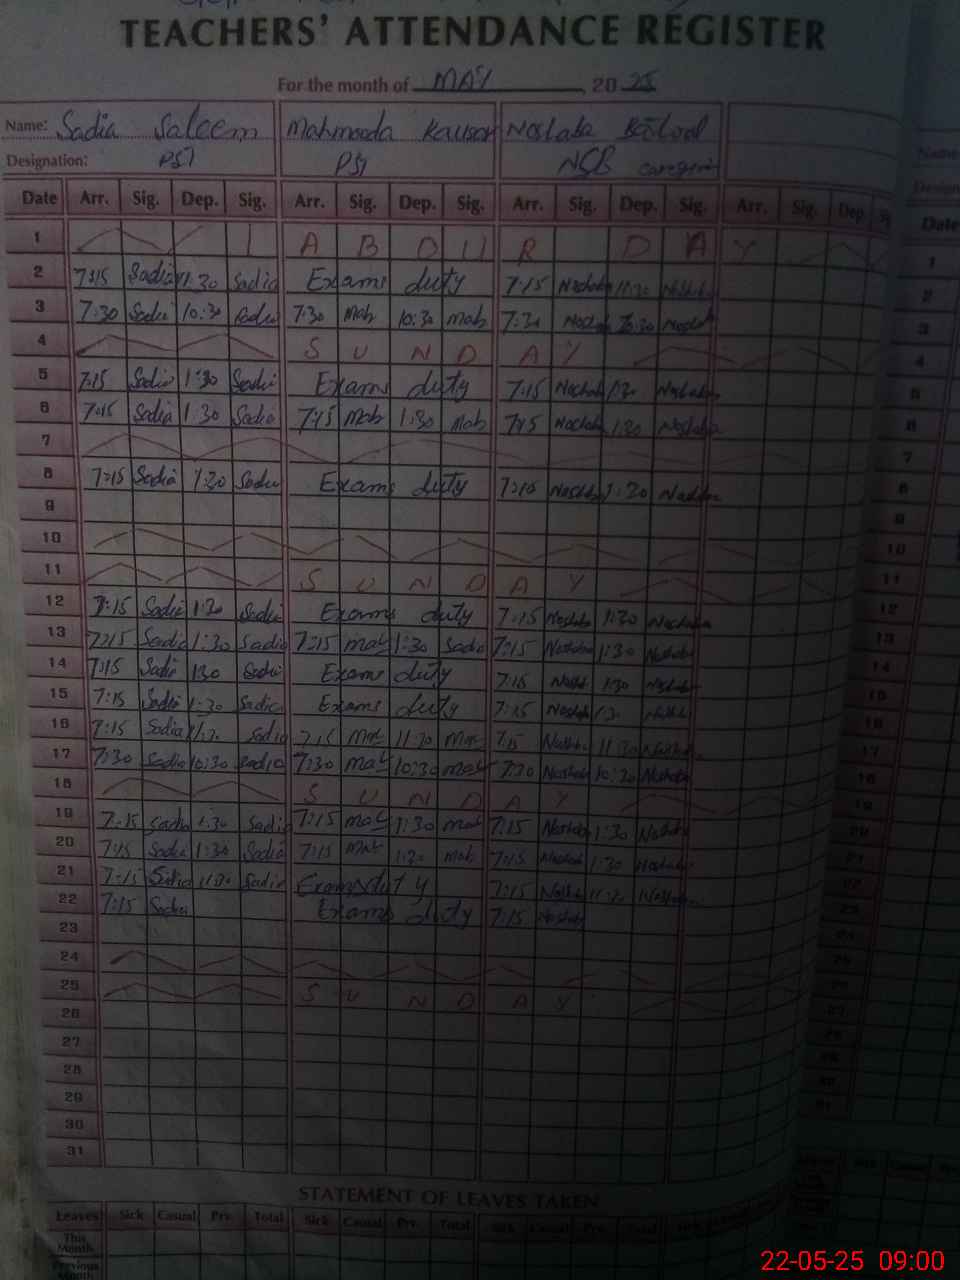 TEACHERS' ATTENDANCE REGISTER
For the month of MAY, 2025
Name: Sadia Saleem Mahmooda Kausar Noshaba Batool
Designation: PST PST
Date Arr. Sig. Dep. Sig. Arr. Sig. Dep. Sig. Arr. Sig. Dep. Sig. Arr. Sig. Dep.
1 L A B O U R D A Y
2 7:15 Sadia 11:30 Sadia Exams duty 7:15 Noshaba 11:30 Noshaba
3 7:30 Sadia 10:30 Sadia 7:30 Mah 10:30 Mah 7:30 Noshab 10:30 Noshab
4 S U N D A Y
5 7:15 Sadia 1:30 Sadia Exams duty 7:15 Noshaba 1:30 Noshaba
6 7:15 Sadia 1:30 Sadia 7:15 Mah 1:30 Mah 7:15 Noshaba 1:30 Noshaba
7
8 7:15 Sadia 1:30 Sadia Exams duty 7:15 Noshaba 1:30 Noshaba
9
10
11 S U N D A Y
12 7:15 Sadia 1:30 Sadia Exams duty 7:15 Noshaba 1:30 Noshaba
13 7:15 Sadia 1:30 Sadia 7:15 mah 1:30 Sadia 7:15 Noshaba 1:30 Noshaba
14 7:15 Sadia 130 Sadia Exams duty 7:15 1:30 Noshaba
15 7:15 Sadia 1:30 Sadia Exams duty 7:15 Noshab
16 7:15 Sadia Sadia 7:15 mah 11:30 mah 7:15 11:30
17 7:30 Sadia 10:30 Sadia 7:30 mah 10:30 mah 7:30 Noshab 10:30 Noshaba
18 S U N D A Y
19 7:15 Sadia 1:30 Sadia 7:15 mah 1:30 mah 7:15 Noshab 1:30 Noshaba
20 7:15 Sadia 1:30 Sadia 7:15 mah 1:30 mah 7:15 Noshab 1:30 Noshaba
21 7:15 Sadia 11:30 Sadia Exams duty 7:15 11:30 Noshaba
22 7:15 Sadia Exams duty 7:15 Noshab
23
24
25 S U N D A Y
26
27
28
29
30
31
STATEMENT OF LEAVES TAKEN
Leaves Sick Casual Prv. Total Sick Casual Prv. Total Sick Casual Prv. Total
This Month
Previous Month
22-05-25 09:00